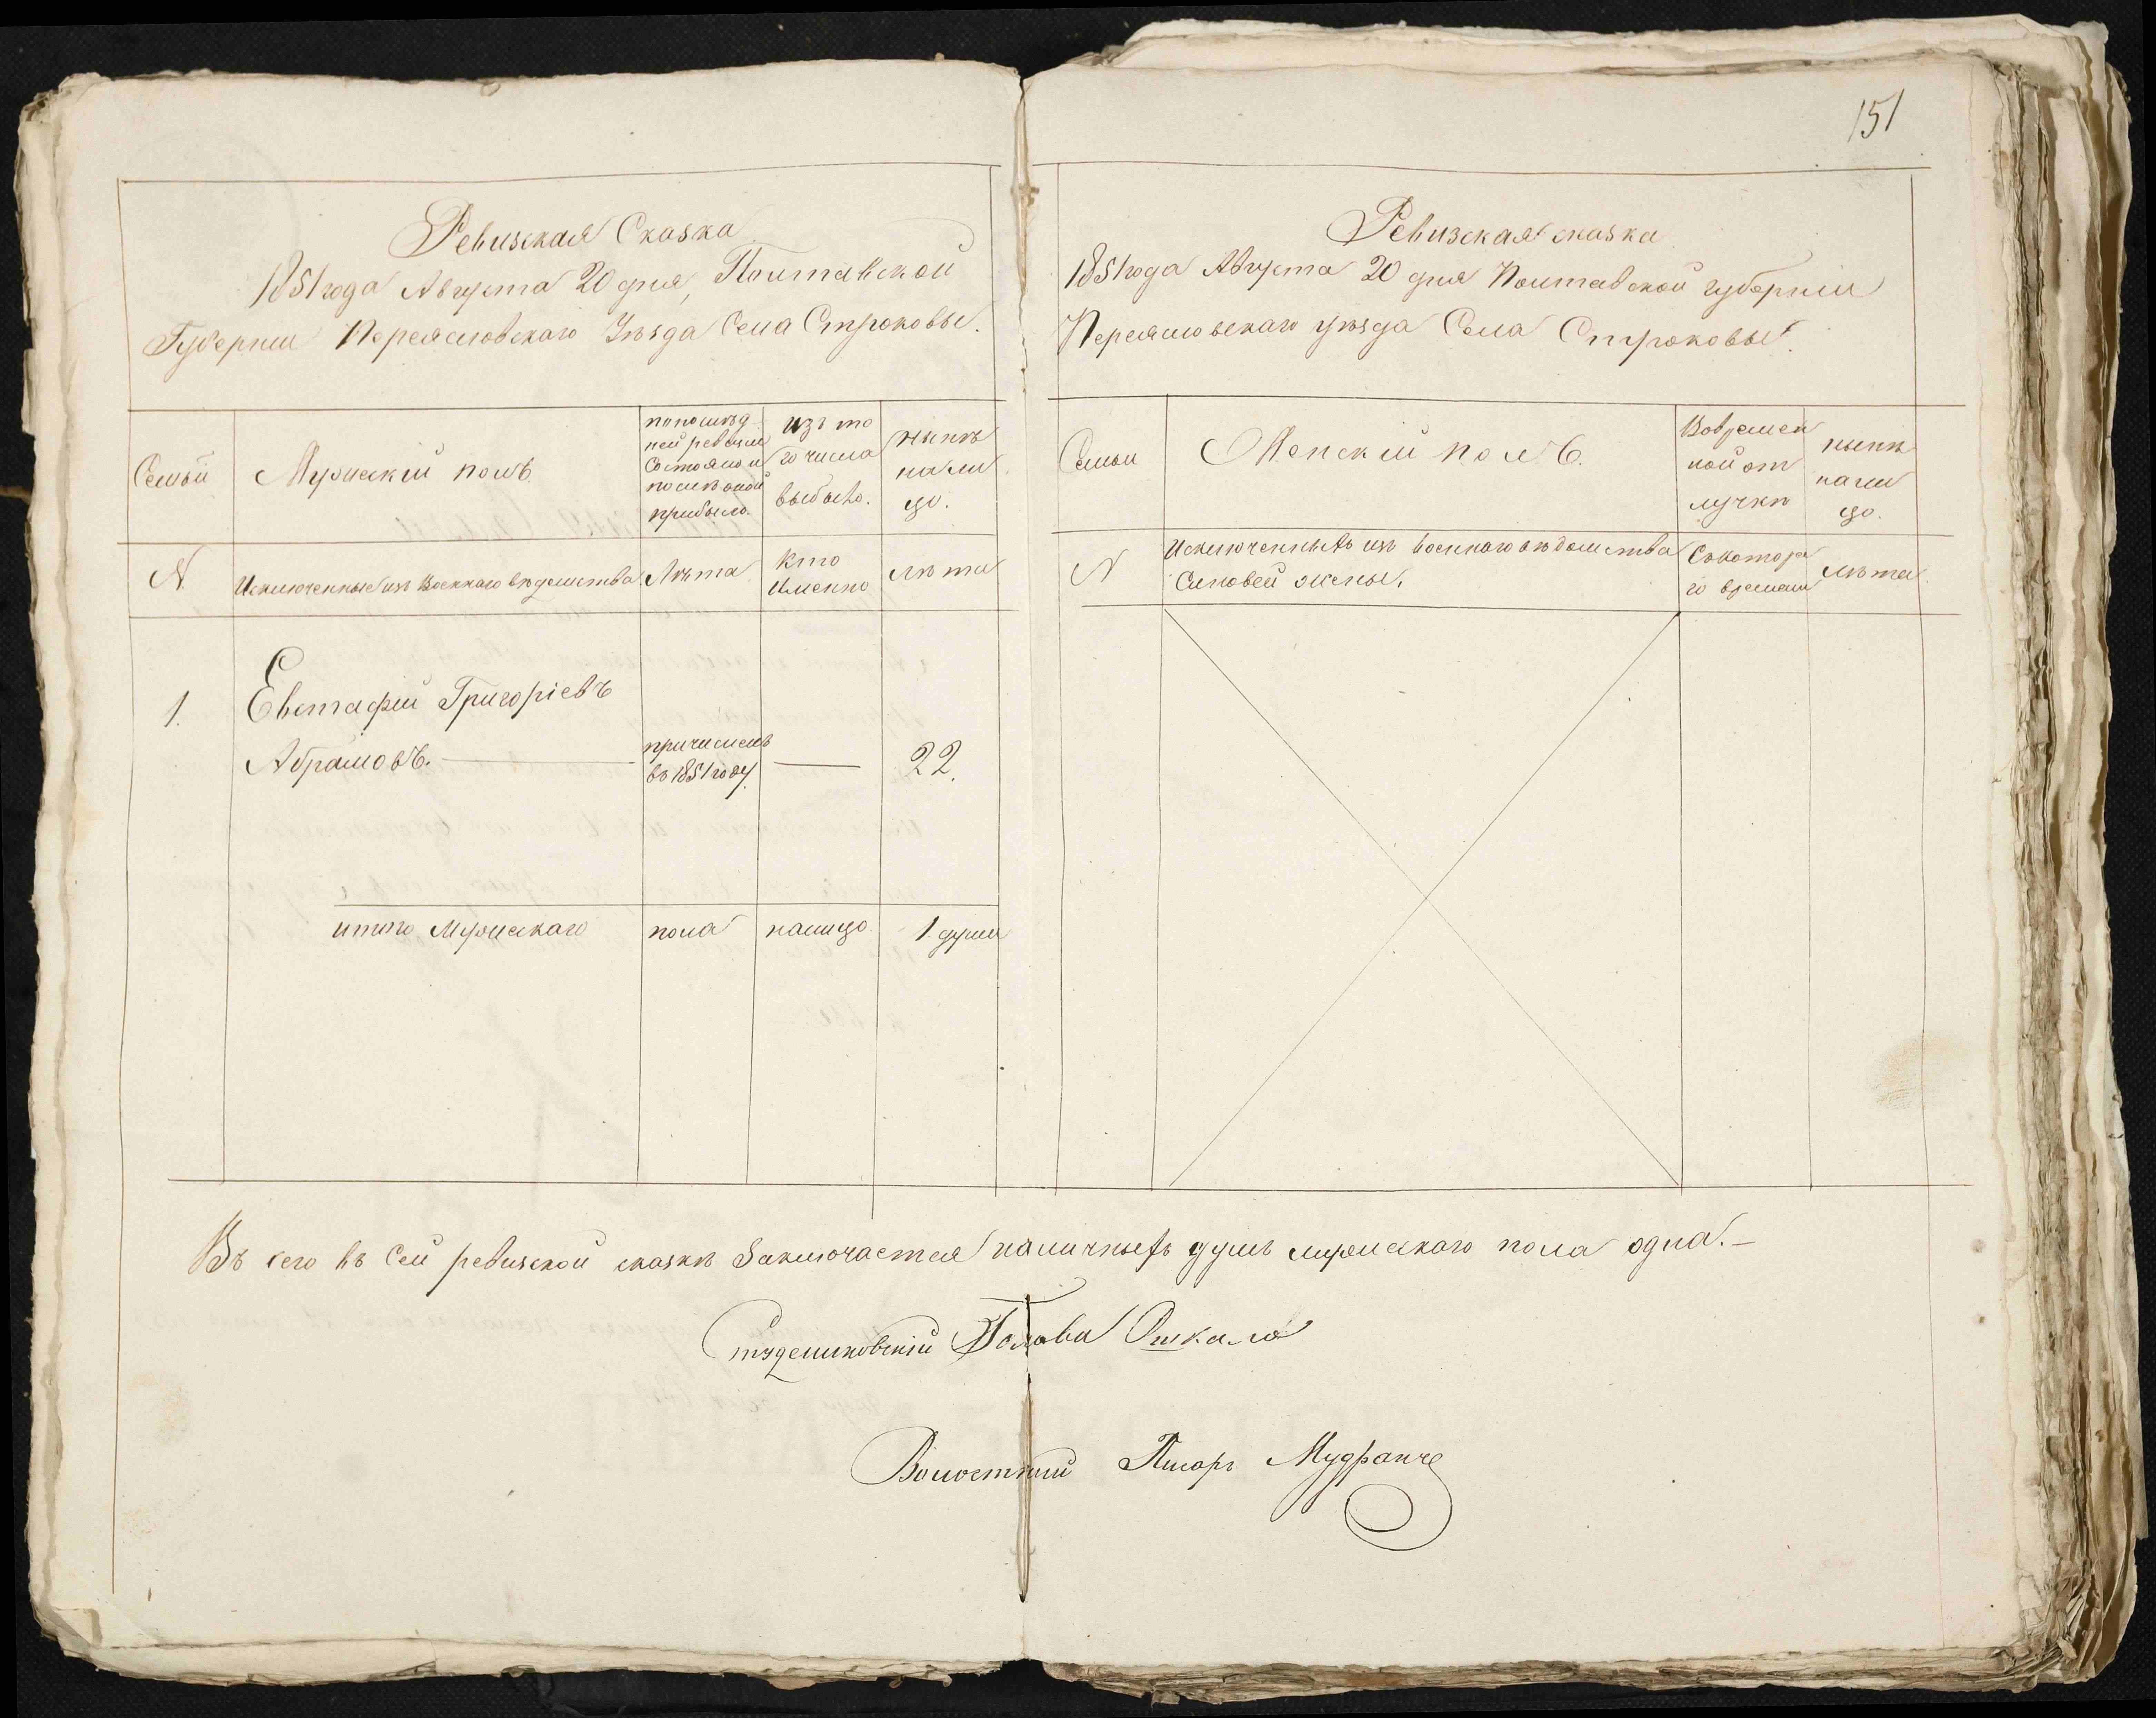 151
Ревизская Сказка
1851 года Августа 20 дня, Полтавской
Губернии Переясловскаго Уѣзда Села Строковы.
Семьи
Мужескій полъ
по послѣд
ней ревизіи
состояло и
после оной
прибыло.
изъ то
го числа
выбыло.
нынѣ
на ли
цо.
N
Исключенные изъ Военнаго вѣдомства
Лѣта
Кто
Именно
лѣта
1.
Евстафій Григоріевъ
Абрамовъ.
причисленъ
въ 1851 году.
22.
итого Мужескаго пола налицо 1 душа
Ревизская сказка
1851 года Августа 20 дня Полтавской губерніи
Переясловскаго уѣзда Села Строковы.
Семьи
Женскій полъ.
Во времен
ной от
лучкѣ
нынѣ
на ли
цо.
N
Исключенныхъ изъ военнаго вѣдомства
Сыновей жены,
Съ котора
го времени
лѣта
Въ сего въ сей ревизской сказкѣ заключается наличныхъ душъ мужескаго пола одна.
Голова Ошкало
Волостный Писарь